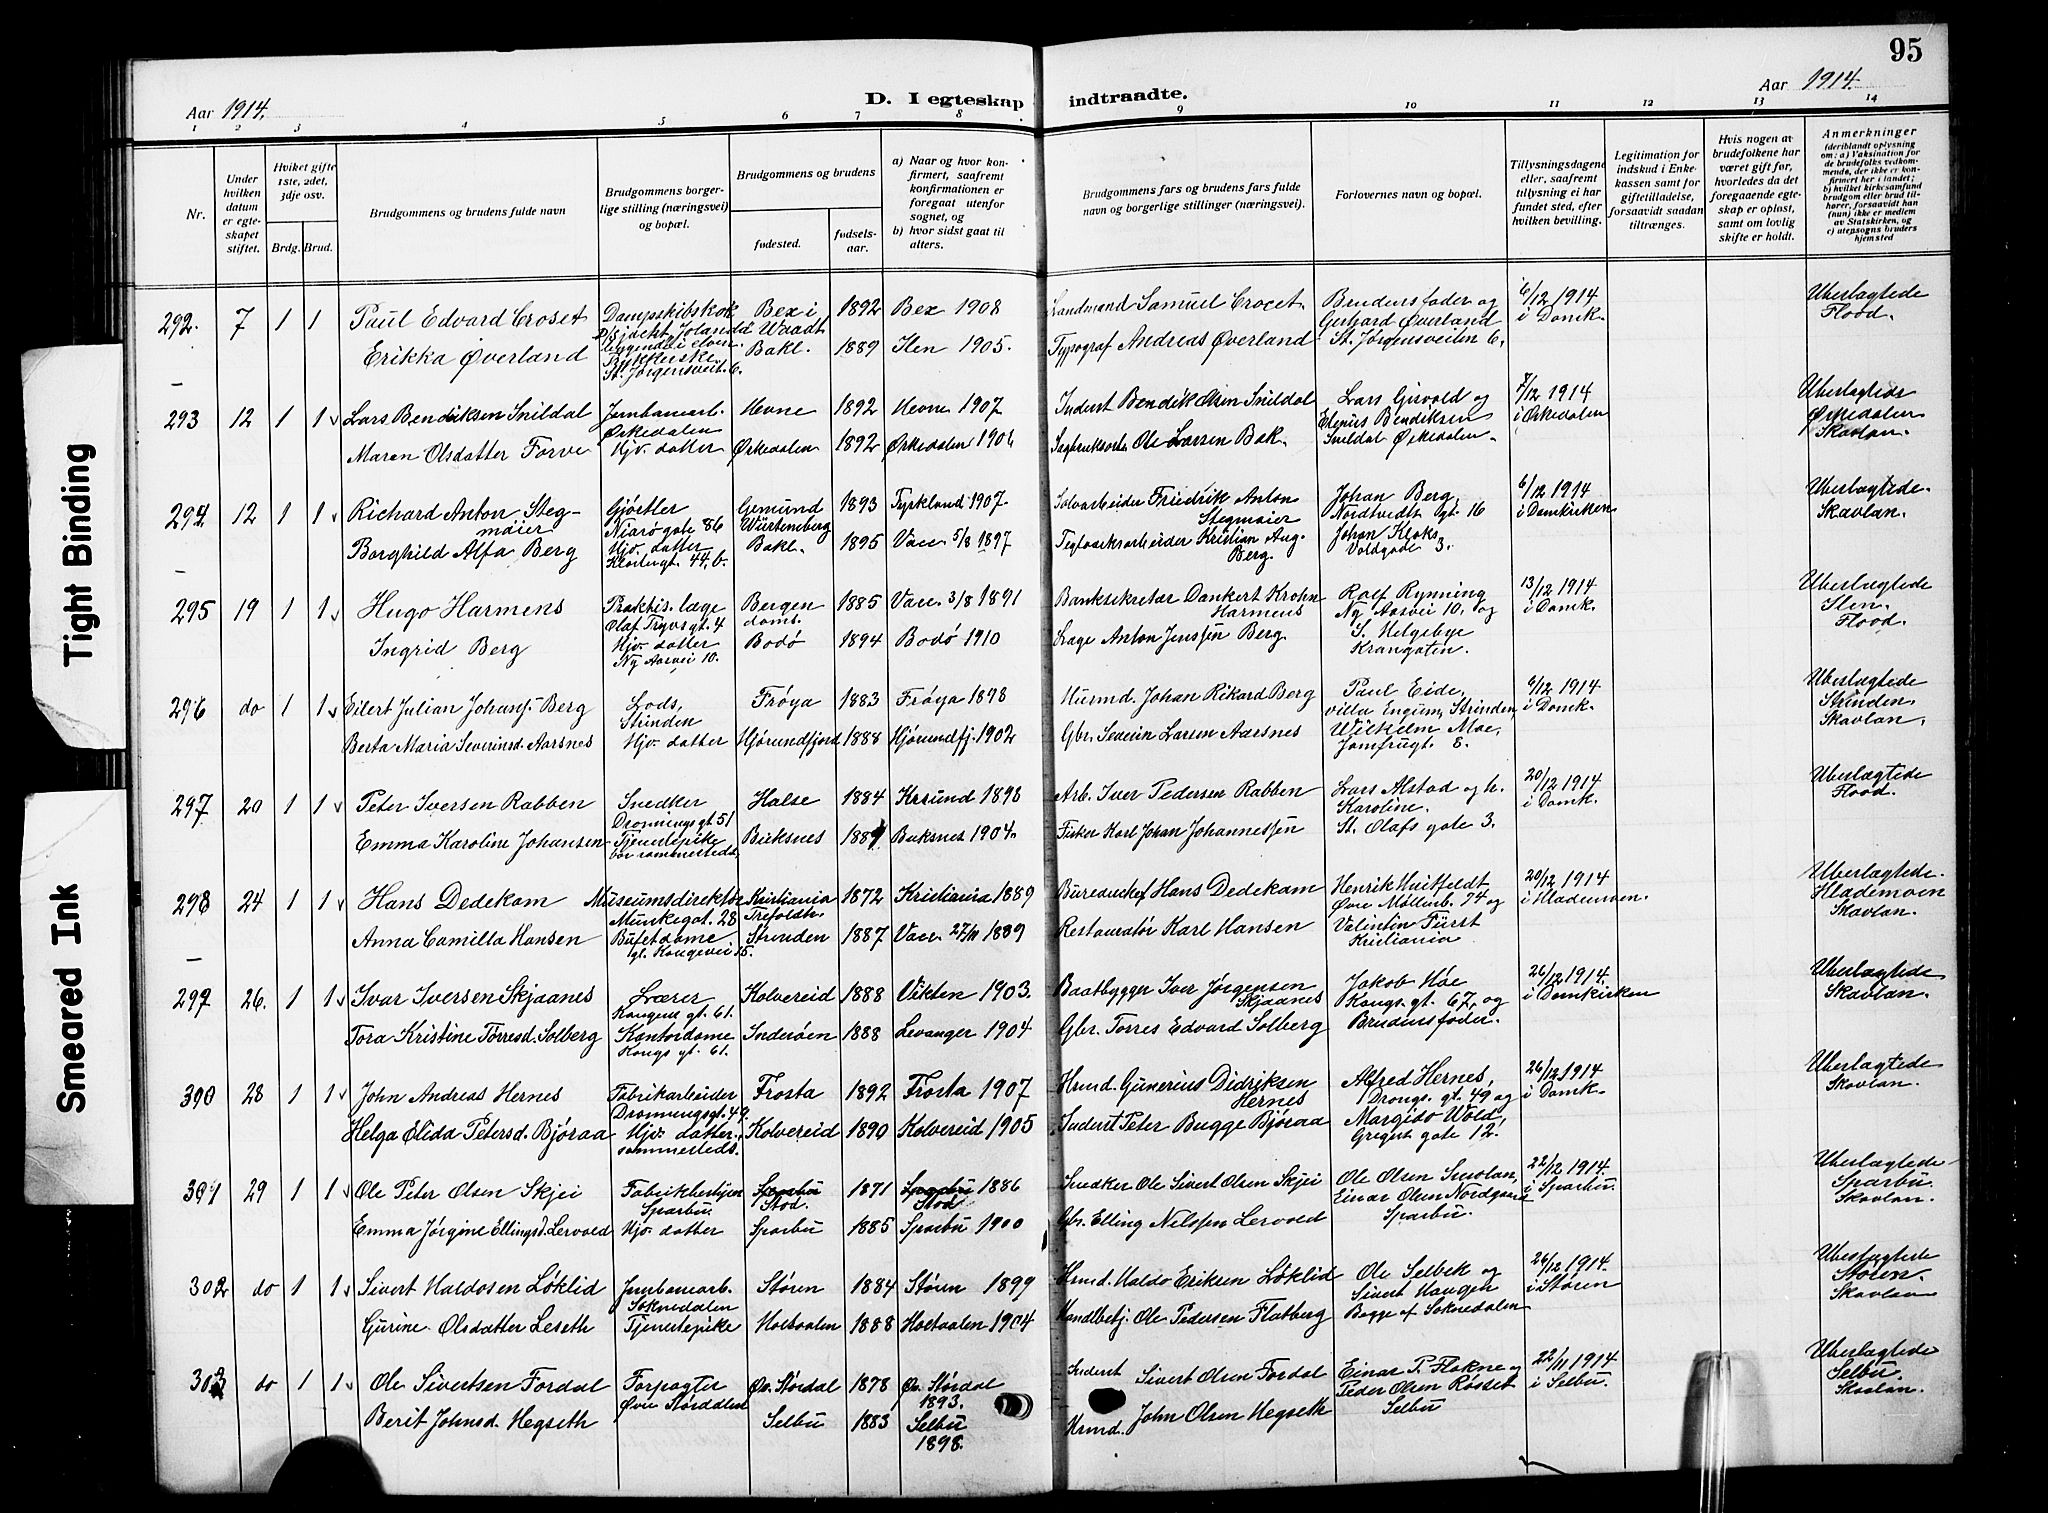 95
Aar 1914.
D. I egteskap indtraadte.
Aar 1914.
1 2 3 4 5 6 7 8 9 10 11 12 13 14
Nr.
Under hvilken datum er egteskapet stiftet.
Hviket gifte 1ste, 2det, 3dje osv.
Brdg. Brud.
Brudgommens og brudens fulde navn
Brudgommens borgerlige stilling (næringsvei) og bopæl.
Brudgommens og brudens
fødested.
fødselsaar.
a) Naar og hvor konfirmert, saafremt konfirmationen er foregaat utenfor sognet, og
b) hvor sidst gaat til alters.
Brudgommens fars og brudens fars fulde navn og borgerlige stillinger (næringsvei).
Forlovernes navn og bopæl.
Tillysningsdagene eller, saafremt tillysning ei har fundet sted, efter hvilken bevilling.
Legitimation for indskud i Enkekassen samt for giftetilladelse, forsaavidt saadan tiltrænges.
Hvis nogen av brudefolkene har været gift før, hvorledes da det foregaaende egteskap er opløst, samt om lovlig skifte er holdt.
Anmerkninger
(deriblandt oplysning om: a) Vaksination for de brudefolks vedkommende, der ikke er konfirmert her i landet; b) hvilket kirkesamfund brudgom eller brud tilhører, forsaavidt han (hun) ikke er medlem av Statskirken, og c) utensogns bruders hjemsted
292. 7 1 1 Paul Edvard Croset Dampskibskok Bex i Waadt 1892 Bex 1908 Landmand Samuel Crocet. Brudens fader og Gerhard Øverland St. Jørgensveiten 6. 6/12 1914 i Domk. Uberlagtede Flood.
Erikka Øverland St. Jørgensveit. 6. Bakl. 1889 Ilen 1905. Typograf Andreas Øverland
293 12 1 1 Lars Bendiksen Snildal Jernbanearb. Ørkedalen Hevne 1892 Hevne 1907 Inderst Bendik Olsen Snildal Lars Gisvold og Elenius Bendiksen Snildal Ørkedalen. 7/12 1914 i Ørkedalen Uberlagtede Ørkedalen Skavlan.
Maren Olsdatter Forve Hjv. datter Ørkedalen 1892 Ørkedalen 1906 Ole Larsen Bak.
294. 12 1 1 Richard Anton Stegmaier Gjørtler Niarosgate 86 Gemund Würtemberg 1893 Tyrkland 1907. Sølvarbeider Friedrik Anton Stegmaier Johan Berg, Nordtvedts gt. 16 Johan Kloks Voldgade 3. 6/12 1914 i Domkirken Uberlagtede. Skavlan.
Borghild Alfa Berg Hjv. datter Klostergt. 44, b. Bakl. 1895 Vacc. 5/8 1897 Kristian Aug. Berg.
295 19 1 1 Hugo Harmens Praktis. læge Olaf Trygvsgt. 4 Bergen doms. 1885 Vacc. 3/8 1891 Banksekretær Dankert Krohn Harmens Rolf Rynning Ny Aasvei 10. og S. Helgebye Krangaten. 13/12 1914 i Domk. Uberlægtede Ilen. Flood.
Ingrid Berg Hjv. datter Ny Aasvei 10. Bodø 1894 Bodø 1910 Læge Anton Jenssen Berg.
296 do 1 1 Eilert Julian Johansf. Berg Lods, Strinden Frøya 1883 Frøya 1898 Husmd. Johan Rikard Berg Paul Eide, villa Engum, Strinden, Wilhelm Moe, Jomfrugt. 8. 6/12 1914 i Domk. Uberlagtede Strinden. Skavlan.
Berta Maria Severinsd. Aarsnes Hjv. datter Hjørundfjord 1888 Hjørundfj. 1902 Gbr. Severin Larsen Aarsnes
297 20 1 1 Peter Iversen Rabben Snedker Dronningsgt. 51 Halse 1884 Krsund 1898 Arb. Iver Pedersen Rabben Lars Alstad og h. Karoline. St. Olafs gate 3. 20/12 1914 i Domk. Uberlagtede Flood.
Emma Karoline Johansen Tjenestepike bor sammesteds, Buksnes Buksnes 1904. Fisker Karl Johan Johannessen
298 24 1 1 Hans Dedekam Museumsdirektør Munkegat. 28 Kristiania Trefoldh. 1872 Kristiania 1889 Hans Dedekam Henrik Huitfeldt Øvre Møllenb. 74 og Valentin Fürst Kristiania 20/12 1914 i Hlademoen. Uberlagtede. Hlademoen Skavlan.
Anna Camilla Hansen Bufetdame gl. Kongevei 15. Strinden 1887 Vacc. 27/11 1889 Restauratør Karl Hansen
299 26. 1 1 Ivar Iversen Skjaanes Lærer Kongens gt. 61. Kolvereid 1888 Vikten 1903. Baatbygger Iver Jørgensen Skjaanes Jakob Høe Kongs. gt. 67, og Brudens fader. 26/12 1914. i Domkirken Uberlagtede Skavlan.
Tora Kristine Torresd. Solberg Kontordame Kongs gt. 61. Inderøen 1888 Levanger 1904 Gbr. Torres Edvard Solberg
300 28 1 1 John Andreas Hernes Fabrikarbeider Dronningsgt. 49. Frosta 1892 Frosta 1907 Hrmd. Gunerius Didriksen Hernes Alfred Hernes, Drongs. gt. 49 og Margido Wold, Gregert gate 12. 26/12 1914 i Domk. Uberlagtede Skavlan.
Helga Elida Petersd. Bjøraa Hjv. datter. sammesteds. Kolvereid 1890 Kolvereid 1905 Inderst Peter Bugge Bjøraa
301 29 1 1 Ole Peter Olsen Skjei Fabrikbestyrer Sparbu. Sparbu Stod. 1871 Sparbu 1886 Stod Snedker Ole Sivert Olsen Skjei Ole Olsen Smolan, Einar Olsen Nordgaard Sparbu. 22/12 1914. i Sparbu. Uberlagtede Sparbu. Skavlan.
Emma Jørgine Ellingsd. Lervold Hjv. datter Sparbu 1885 Sparbu 1900 Gbr. Elling Nilssen Lervold
302 do 1 1 Sivert Haldosen Løklid Jernbanearb. Soknedalen Støren 1884 Støren 1899 Hrmd. Haldo Eriksen Løklid Ole Selbek og Sivert Haugen Begge af Soknedalen 26/12 1914. i Støren Uberlagtede Støren. Skavlan
Gurine Olsdatter Leseth Tjenestepike Holtaalen 1888 Holtaalen 1904 Handlbetj. Ole Pedersen Flatberg
303 do 1 1 Ole Sivertsen Fordal Forpagter Øvre Stjørdalen Øv. Stördal 1878 Øv. Stördal 1893. Inderst Sivert Olsen Fordal Einar P. Flokne og Peder Olsen Røsset Selbu 22/11 1914 i Selbu. Uberlagtede Selbu. Skavlan.
Berit Johnsd. Hegseth Selbu 1883 Selbu 1898. Hrmd. John Olsen Hegseth
Tight Binding
Smeared Ink